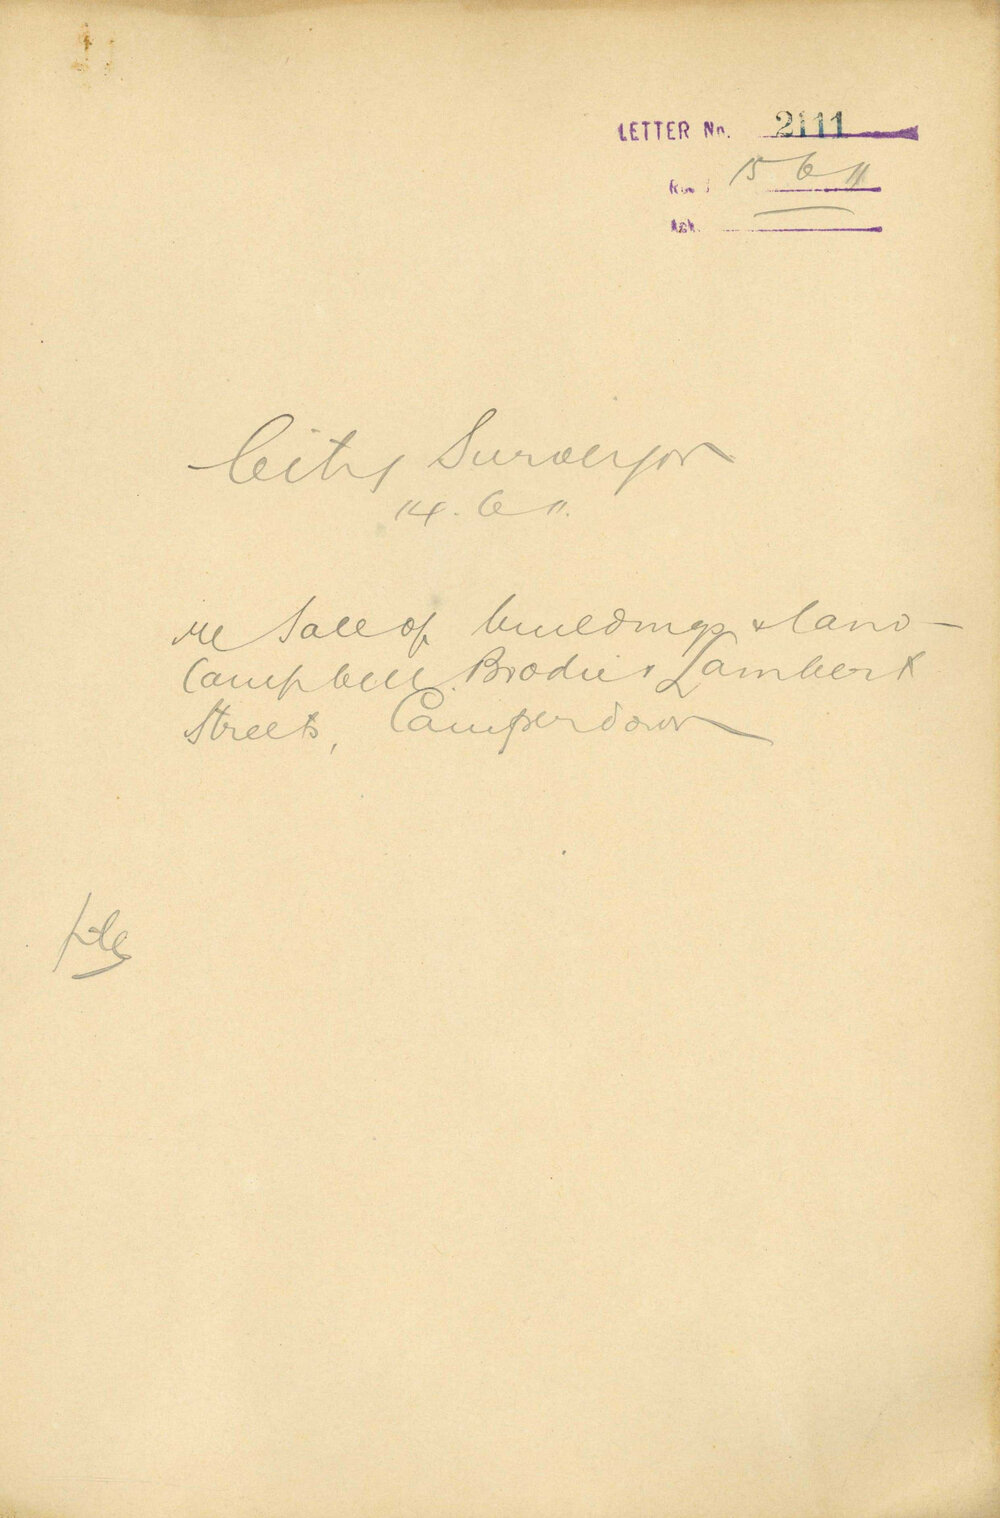 LETTER No. 2111
Rec'd 15 6 11
Ack.
City Surveyor
14. 6 11.
re Sale of buildings & land -
Campbell Brodie & Lambert
Streets, Camperdown